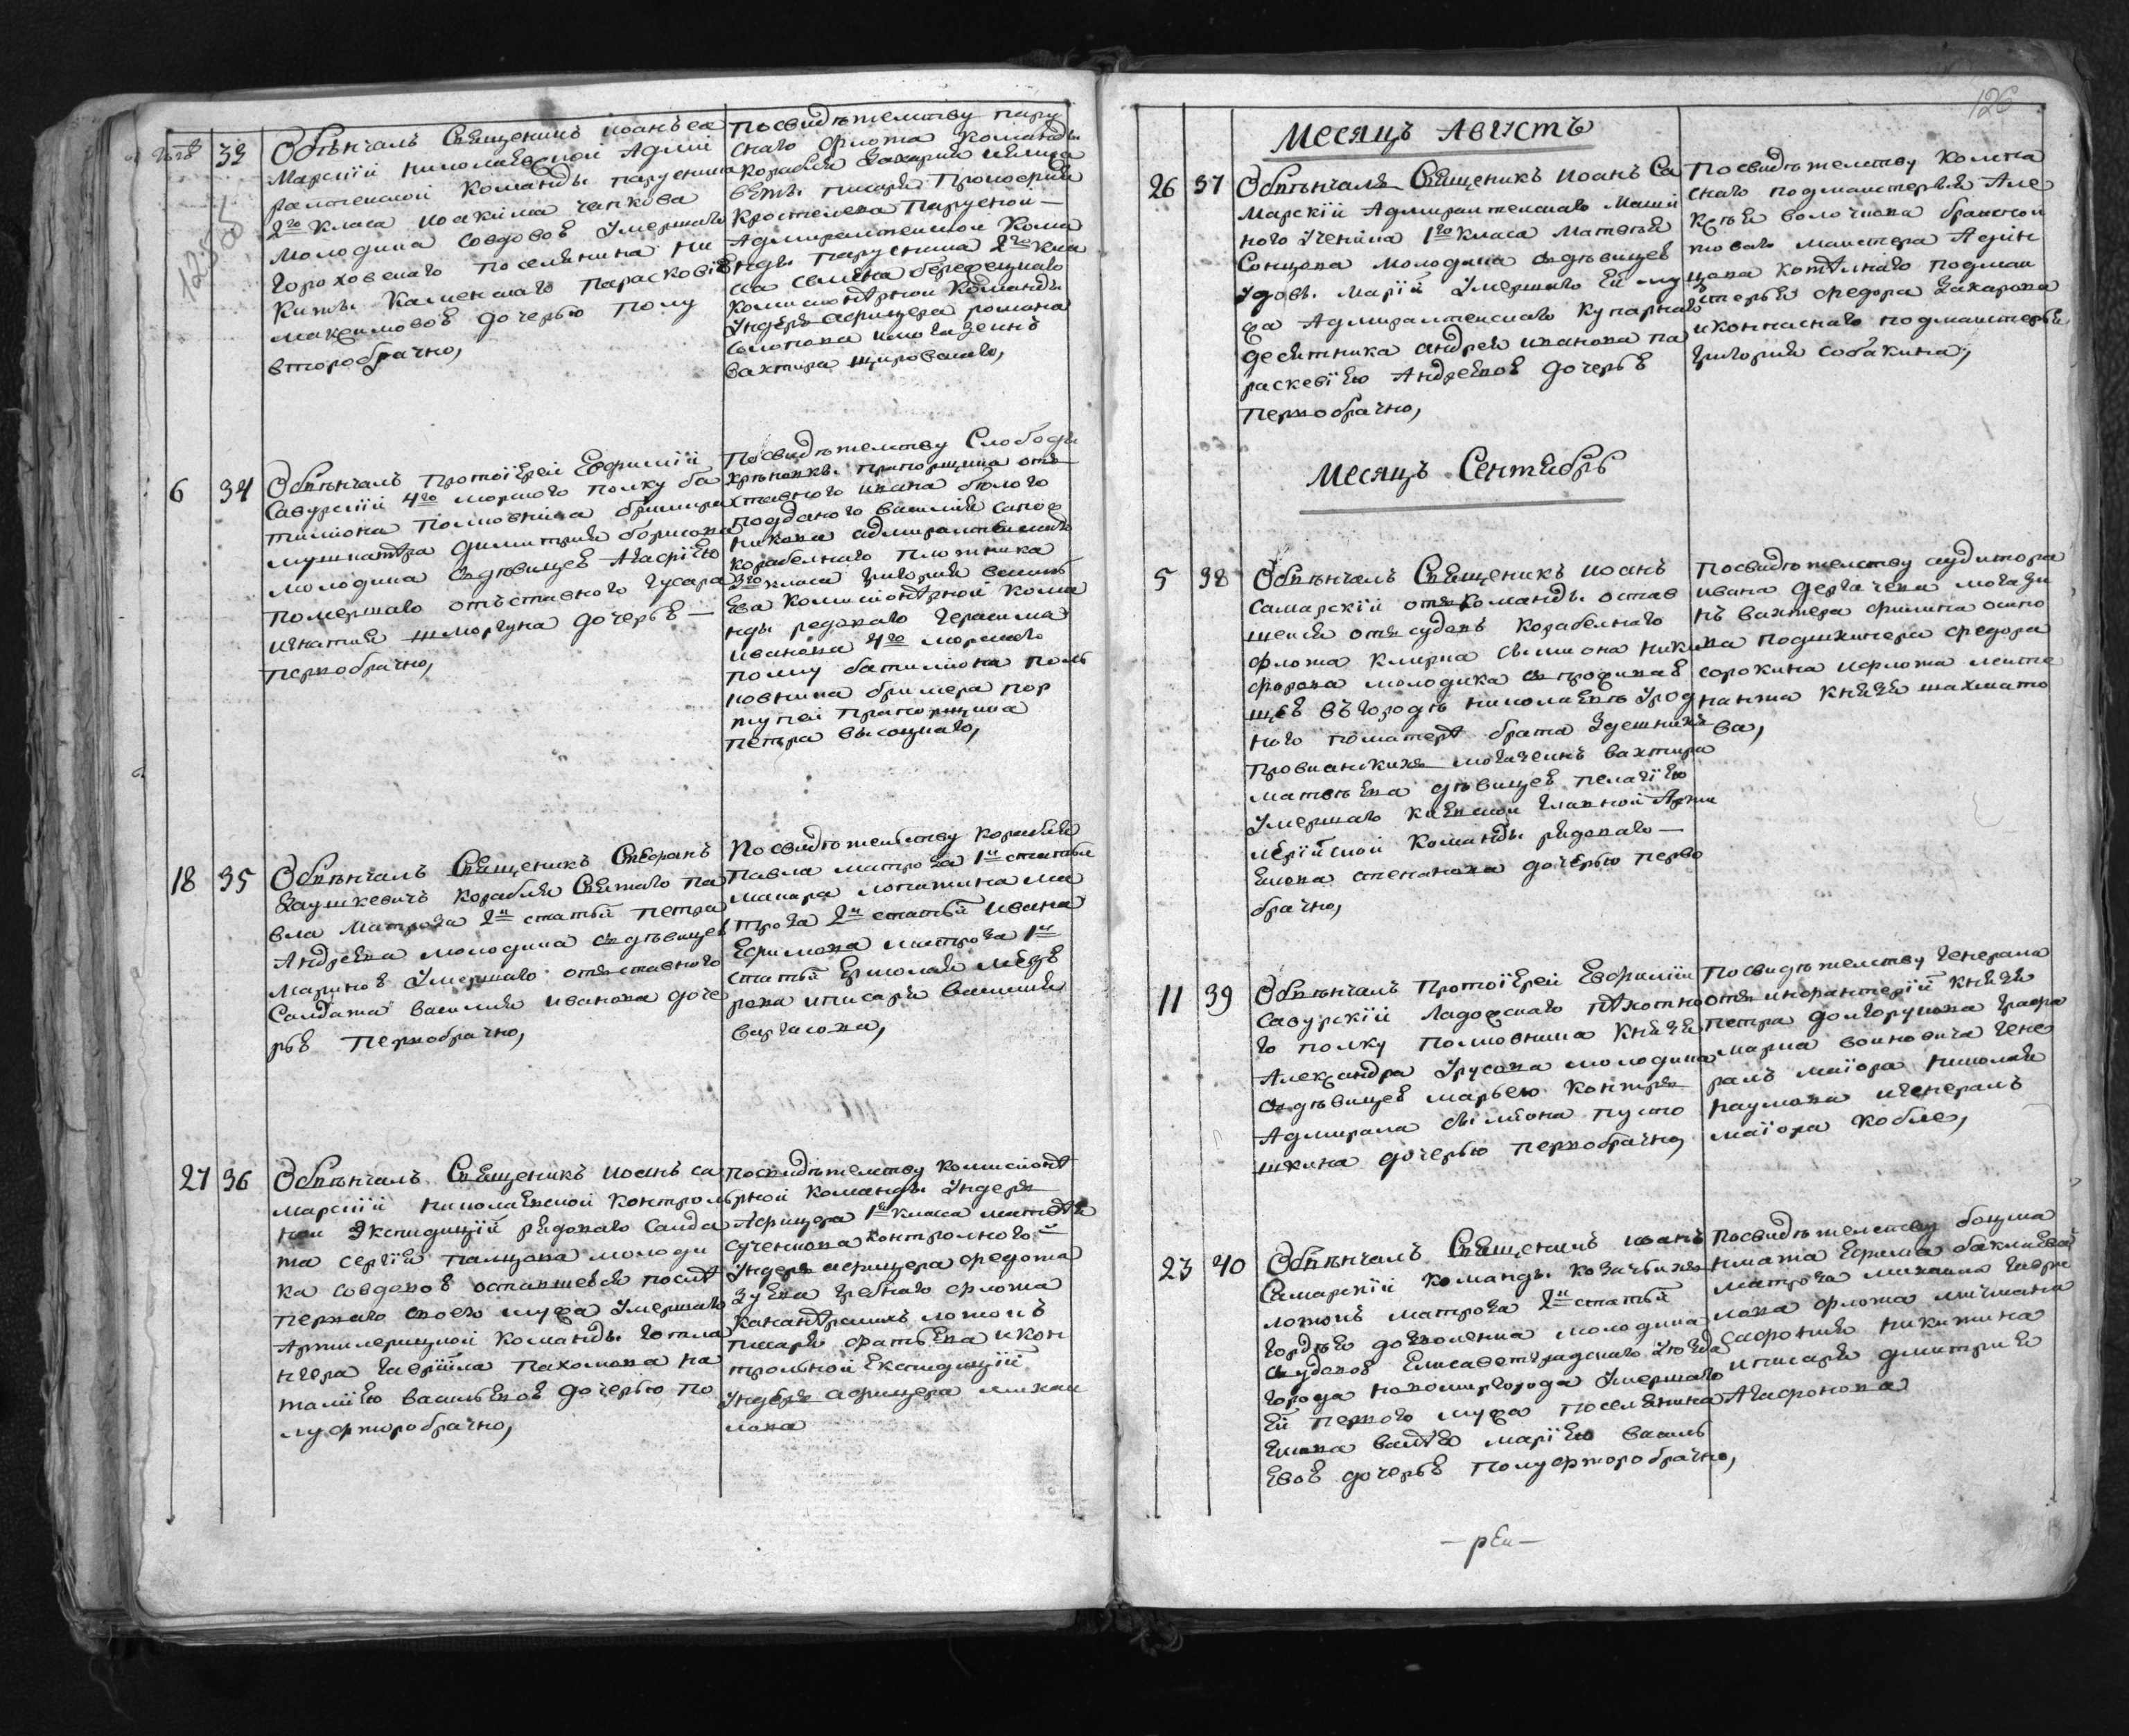 33
Обвѣнчалъ Священикъ иоанъ са
Марскiй николаевской Адми
ралтейской Команды парусника
2го Класа иоакима чапкова
молодика совдовоѣ Умершаго
гороховскаго поселянина Ни
Киты Каменскаго Парасковiѣ
максимовоѣ дочерью полу
второбрачно,
посвидѣтелству пару
снаго флота Команды
Корабля Захария
писаря Прокофия
Костелева Парусной
Адмиралтейской Кома
нды парусника 2го Кла
са семена
Комисионерной Команды
Ундеръ афицера романа
вахтира
6
34
Обвѣнчалъ Протоiерей Евфимiй
Савурскiй 4го морского полку ба
талиiона полковника бримера
мушкатера димитрия борисова
молодика здѣвицеѣ Агафiею
помершаго отъставного гусара
игнатия шморгуна дочерѣ
первобрачно,
посвидѣтелству Слободы
хрѣновки прапорщика отъ
ставного ивана бѣлого
подданого василия сапож
никова адмиралтейскаго
корабелнаго плотника
3го класа григория василь
ева комисионерной кома
нды редоваго герасима
иванова 4го морского
полку баталиiона поль
ковника бримера пор
тупей прапорщика
петра высоцкаго,
18
35
Обвѣнчалъ Священикъ Стефанъ
Заушкевичъ корабля Святаго Па
вла Матроза 2й статьи петра
Андреева молодика здѣвицеѣ
мариноѣ Умершаго отъставного
Салдата василия иванова доче
рьѣ первобрачно,
По свидѣтелству корабля
Павла матроза 1й статьи
макара лопатина ма
троза 2й статьи ивана
Ефимова матроза 1й
статьи Ермолая
рова иписаря василия
варгасова,
27
36
Обвѣнчалъ Священикъ иоанъ са
марскiй николаевской контроль
ной Экспедицiй редоваго Салда
та сергiея палцова молоди
ка совдовоѣ оставшейся послѣ
перваго своего мужа Умершаго
Артилерицкой команды
нера гаврiила пахомова на
талиею васильевоѣ дочерью по
луфторобрачно,
посвидѣтелству Комисионе
рной команды Ундеръ
Афицера 1го класа матвѣя
сученкова контролного
Ундеръ афицера федота
зуева гребнаго флота
канонерскихъ лотокъ
писаря фатѣева икон
трольной Експедицiй
Ундеръ афицера михаи
лова
126
Месяцъ Августъ
26
37
Обвѣнчалъ Священикъ иоанъ Са
Марскiй Адмиралтейскаго Маши
ного Ученика 1го класа Матвѣя
Сонцова молодика здѣвицеѣ
Удовы Марiи Умершаго Ей му
жа Адмиралтейскаго купарнаго
десятника андрея иванова па
раскевiею Андреевоѣ дочерьѣ
первобрачно,
посвидѣтелству компа
снаго подмаистерья Але
ксѣя волочкова бранспои
товаго маистера Афон
цова котелнаго подмаи
стерья федора Захарова
иконпаснаго подмаистерья
григория собакина,
Месяцъ Сентябрь
5
38
Обвѣнчалъ Священикъ иоанъ
самарскiй отъ команды остав
шейся отъ судовъ корабелнаго
флота клерка симиона ники
форова молодика
щеѣ въ городѣ николаевѣ Урод
ного поматере брата здешнихъ
провианскихъ могазеинъ вахтира
матвѣева дѣвицеѣ пелагiею
Умершаго киевской главной Арти
лерiйской команды редоваго
Екова степанова дочерью перво
брачно,
посвидѣтелству аудитора
ивана дергачева могази
нъ вахтера филипа осипо
ва подшкипера федора
сорокина ифлота лейте
нанта князя шахмато
ва,
11
39
Обвѣнчалъ Протоiерей Евфимiй
Савурскiй Ладожскаго пехотно
го полку полковника князя
Александра Урусова молодика
здѣвицеѣ марьею контръ
Адмирала симiона пусто
шкина дочерью первобрачно,
посвидѣтелству генерала
отъ инфантерiй князя
петра долгорукова графа
марка воиновича гене
ралъ маiора николая
наумова игенералъ
маiора кобле,
23
40
Обвѣнчалъ Священикъ иоанъ
Самарскiй команды козачьихъ
лотокъ матроза 2й статьи
гордѣя довполенка молодика
свдовоѣ Елисаветградскаго Уезда
города новомиргорода Умершаго
Ей первого мужа поселянина
Екова марiею василь
евоѣ дочерьѣ полуфторобрачно,
посвидѣтелству боцма
нмата Ефима баклаева
матроза михаила гаври
лова флота мичмана
Сафония никитина
иписаря дмитрия
Агафонова